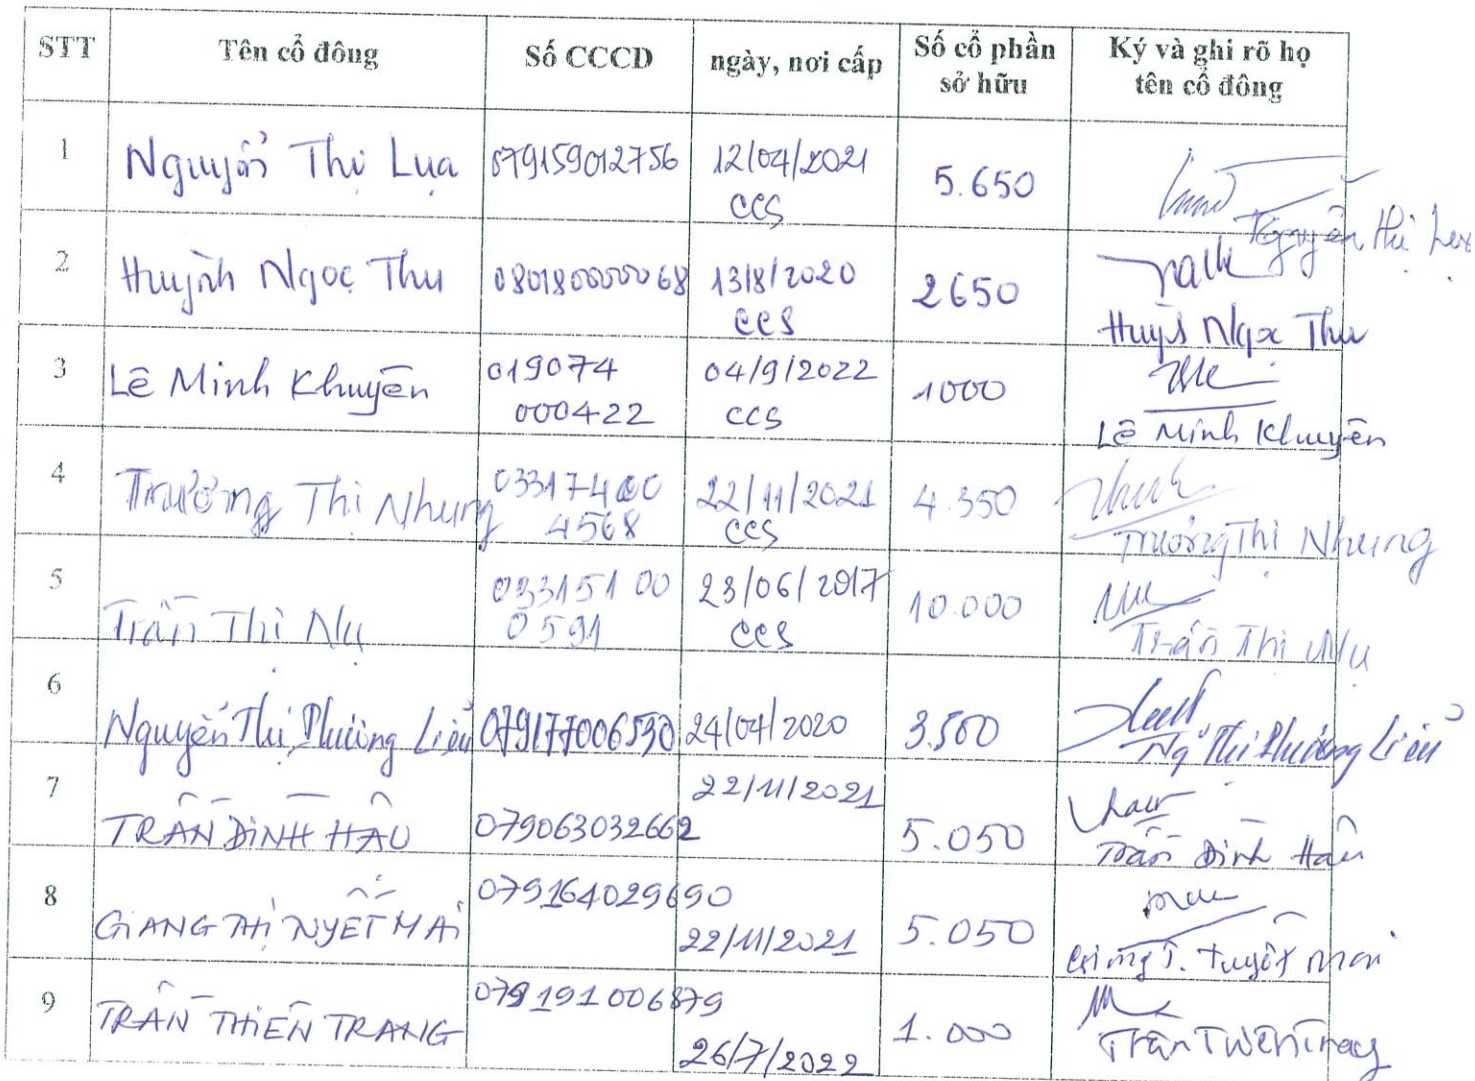 STT Tên cổ đông Số CCCD ngày, nơi cấp Số cổ phần sở hữu Ký và ghi rõ họ tên cổ đông
1 Nguyễn Thị Lụa 079159012756 12/04/2021 CCS 5.650
Nguyễn Thị Lụa
2 Huỳnh Ngọc Thu 080180000068 13/8/2020 CCS 2650
Huỳnh Ngọc Thu
3 Lê Minh Khuyến 019074 000422 04/9/2022 CCS 1000
Lê Minh Khuyến
4 Trương Thị Nhung 03317400 4568 22/11/2021 CCS 4.350
Trương Thị Nhung
5 Trần Thị Nụ 03315100 0591 23/06/2017 CCS 10.000
Trần Thị Nụ
6 Nguyễn Thị Phương Liễu 079177006530 24/04/2020 3.500
Ng Thị Phương Liễu
7 TRẦN ĐÌNH HẬU 079063032662 22/11/2021 5.050
Trần Đình Hậu
8 GIANG THỊ TUYẾT MAI 079164029690 22/11/2021 5.050
Giang T. Tuyết Mai
9 TRẦN THIÊN TRANG 079191006879 26/7/2022 1.000
Trần Thiên Trang